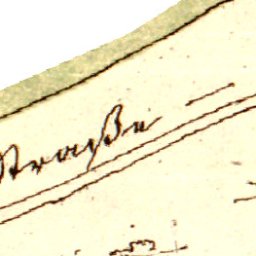 Straße